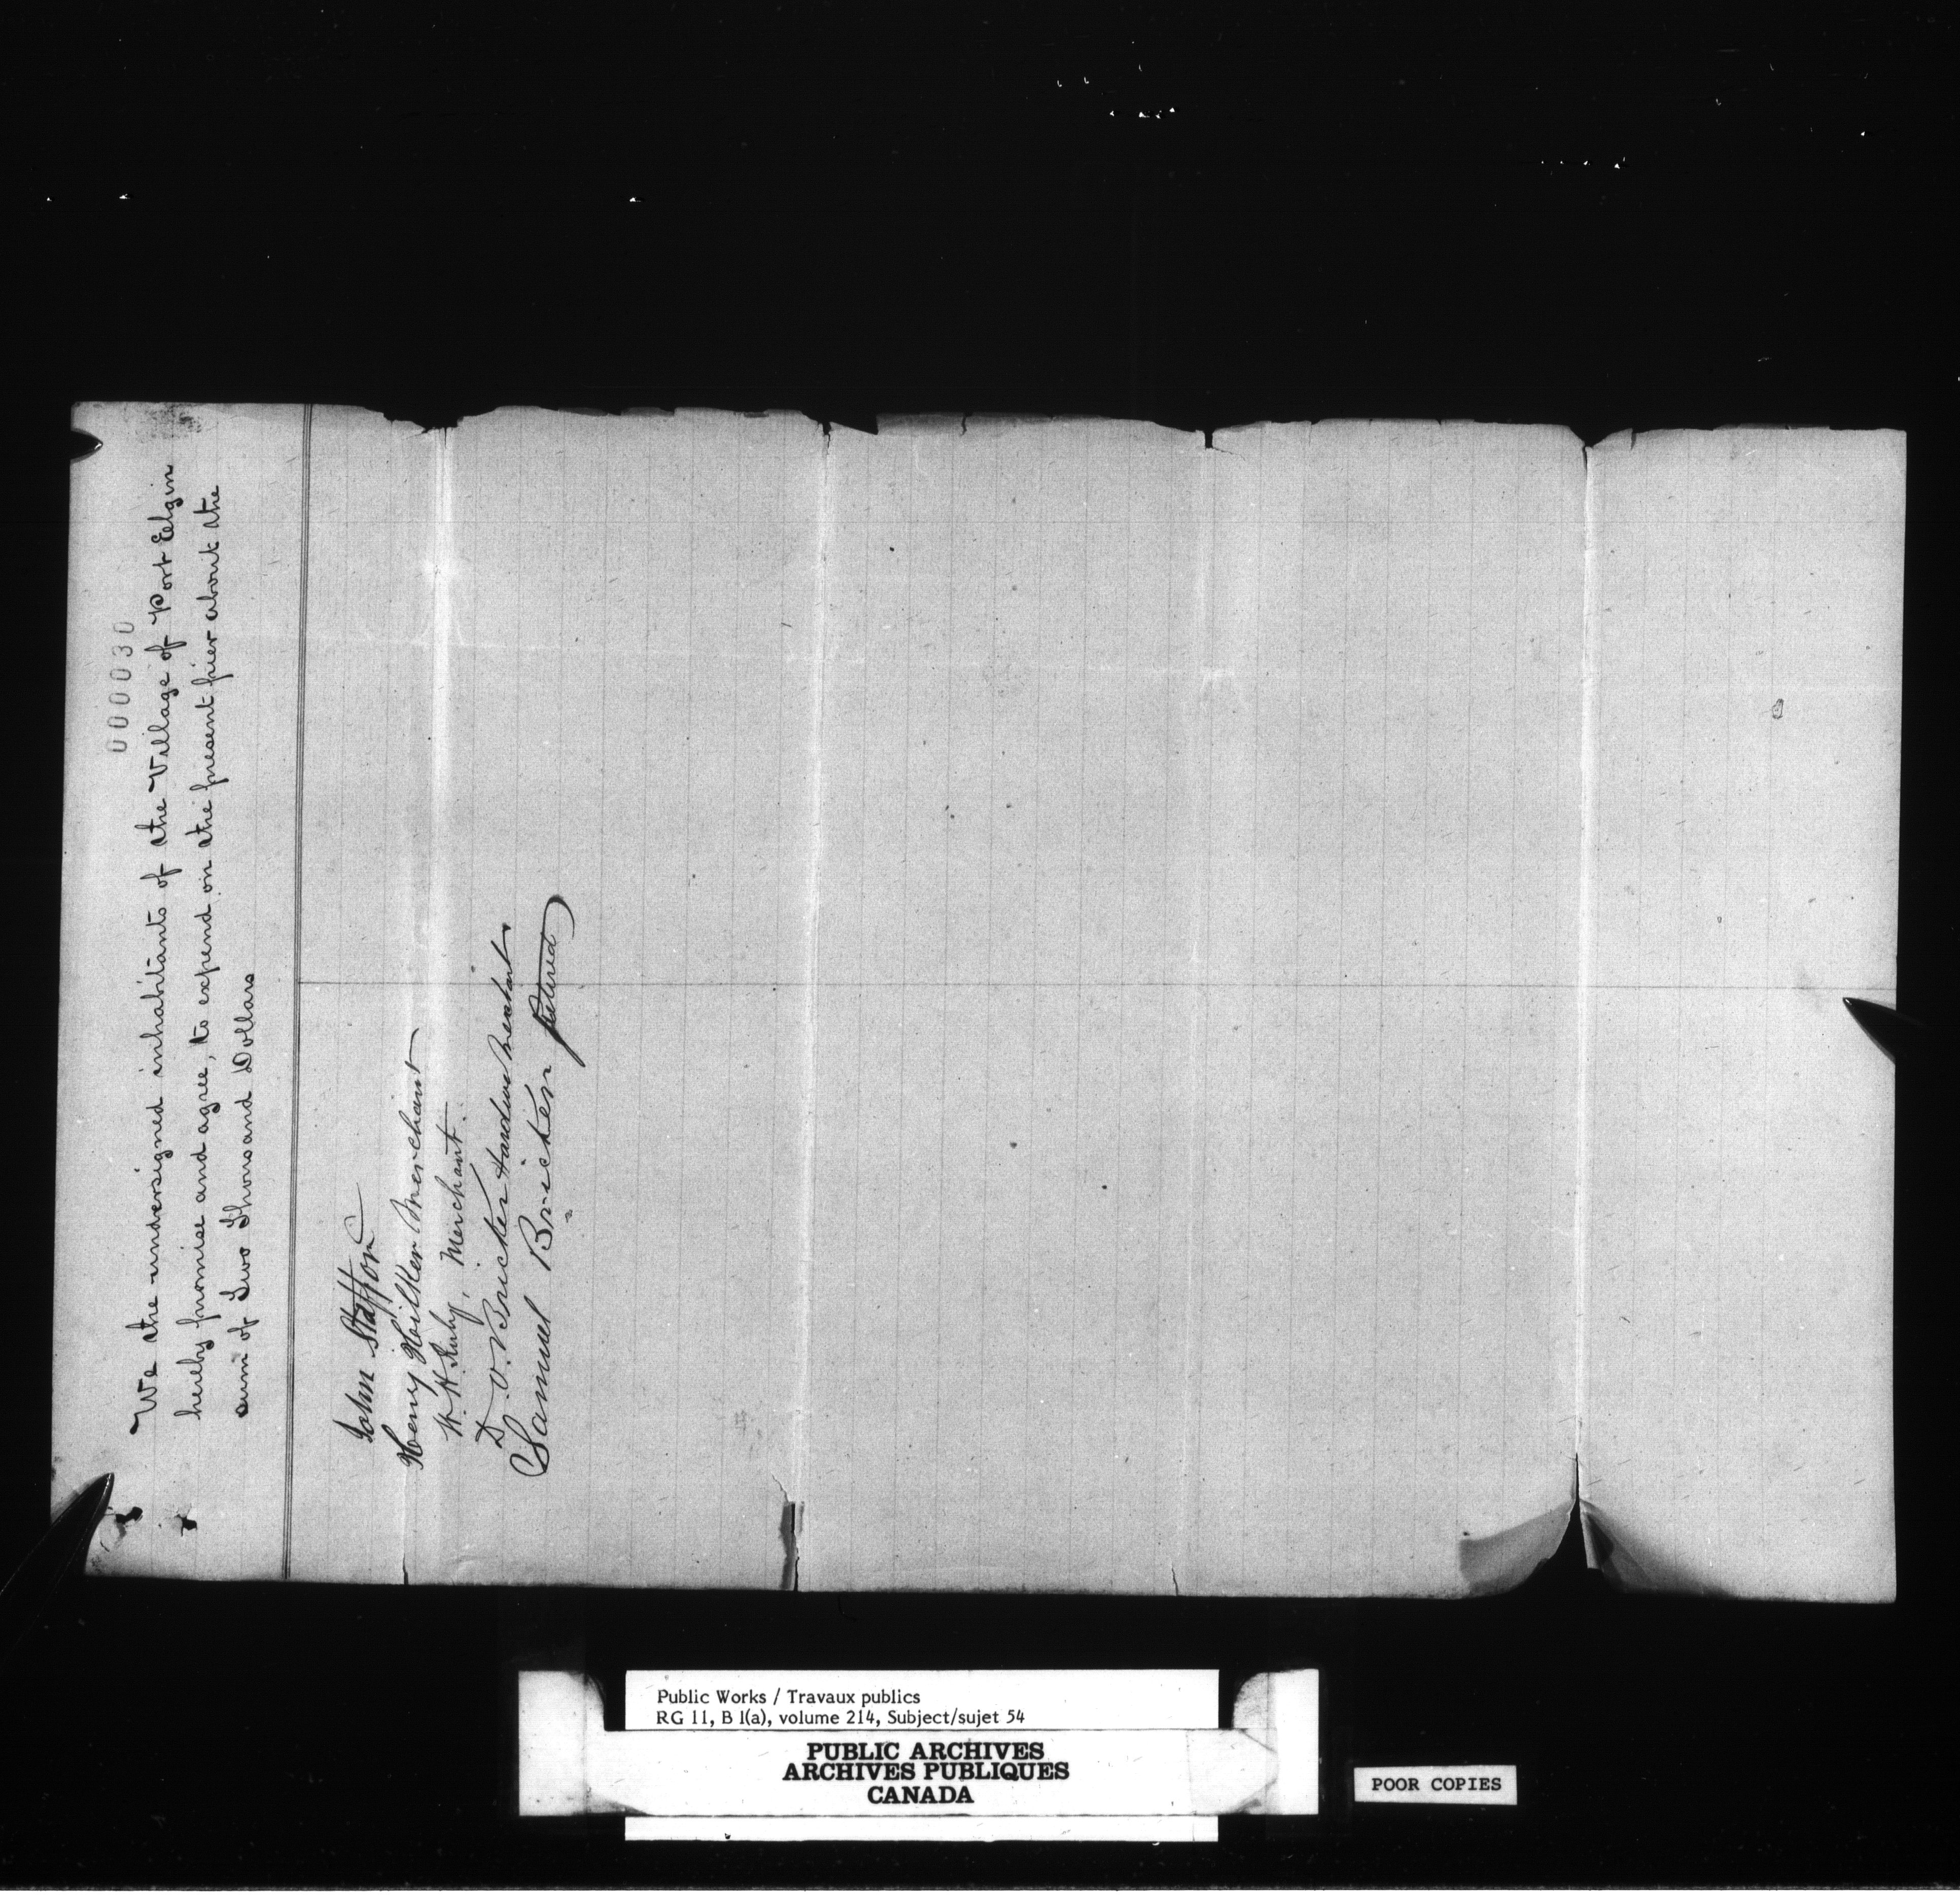 000030
We the undersigned inhabitants of the Village of Port Elgin
hereby promise and agree, to expend on the present pier about the
sum of Two Thousand Dollars
John Stafford
Henry Hilker Merchant
W. H. Ruby, Merchant.
D. Bricker Hardware Merchant
Samuel Bricker Retired
Public Works / Travaux publics
RG 11, B 1(a), volume 214, Subject/sujet 54
PUBLIC ARCHIVES
ARCHIVES PUBLIQUES
CANADA
POOR COPIES